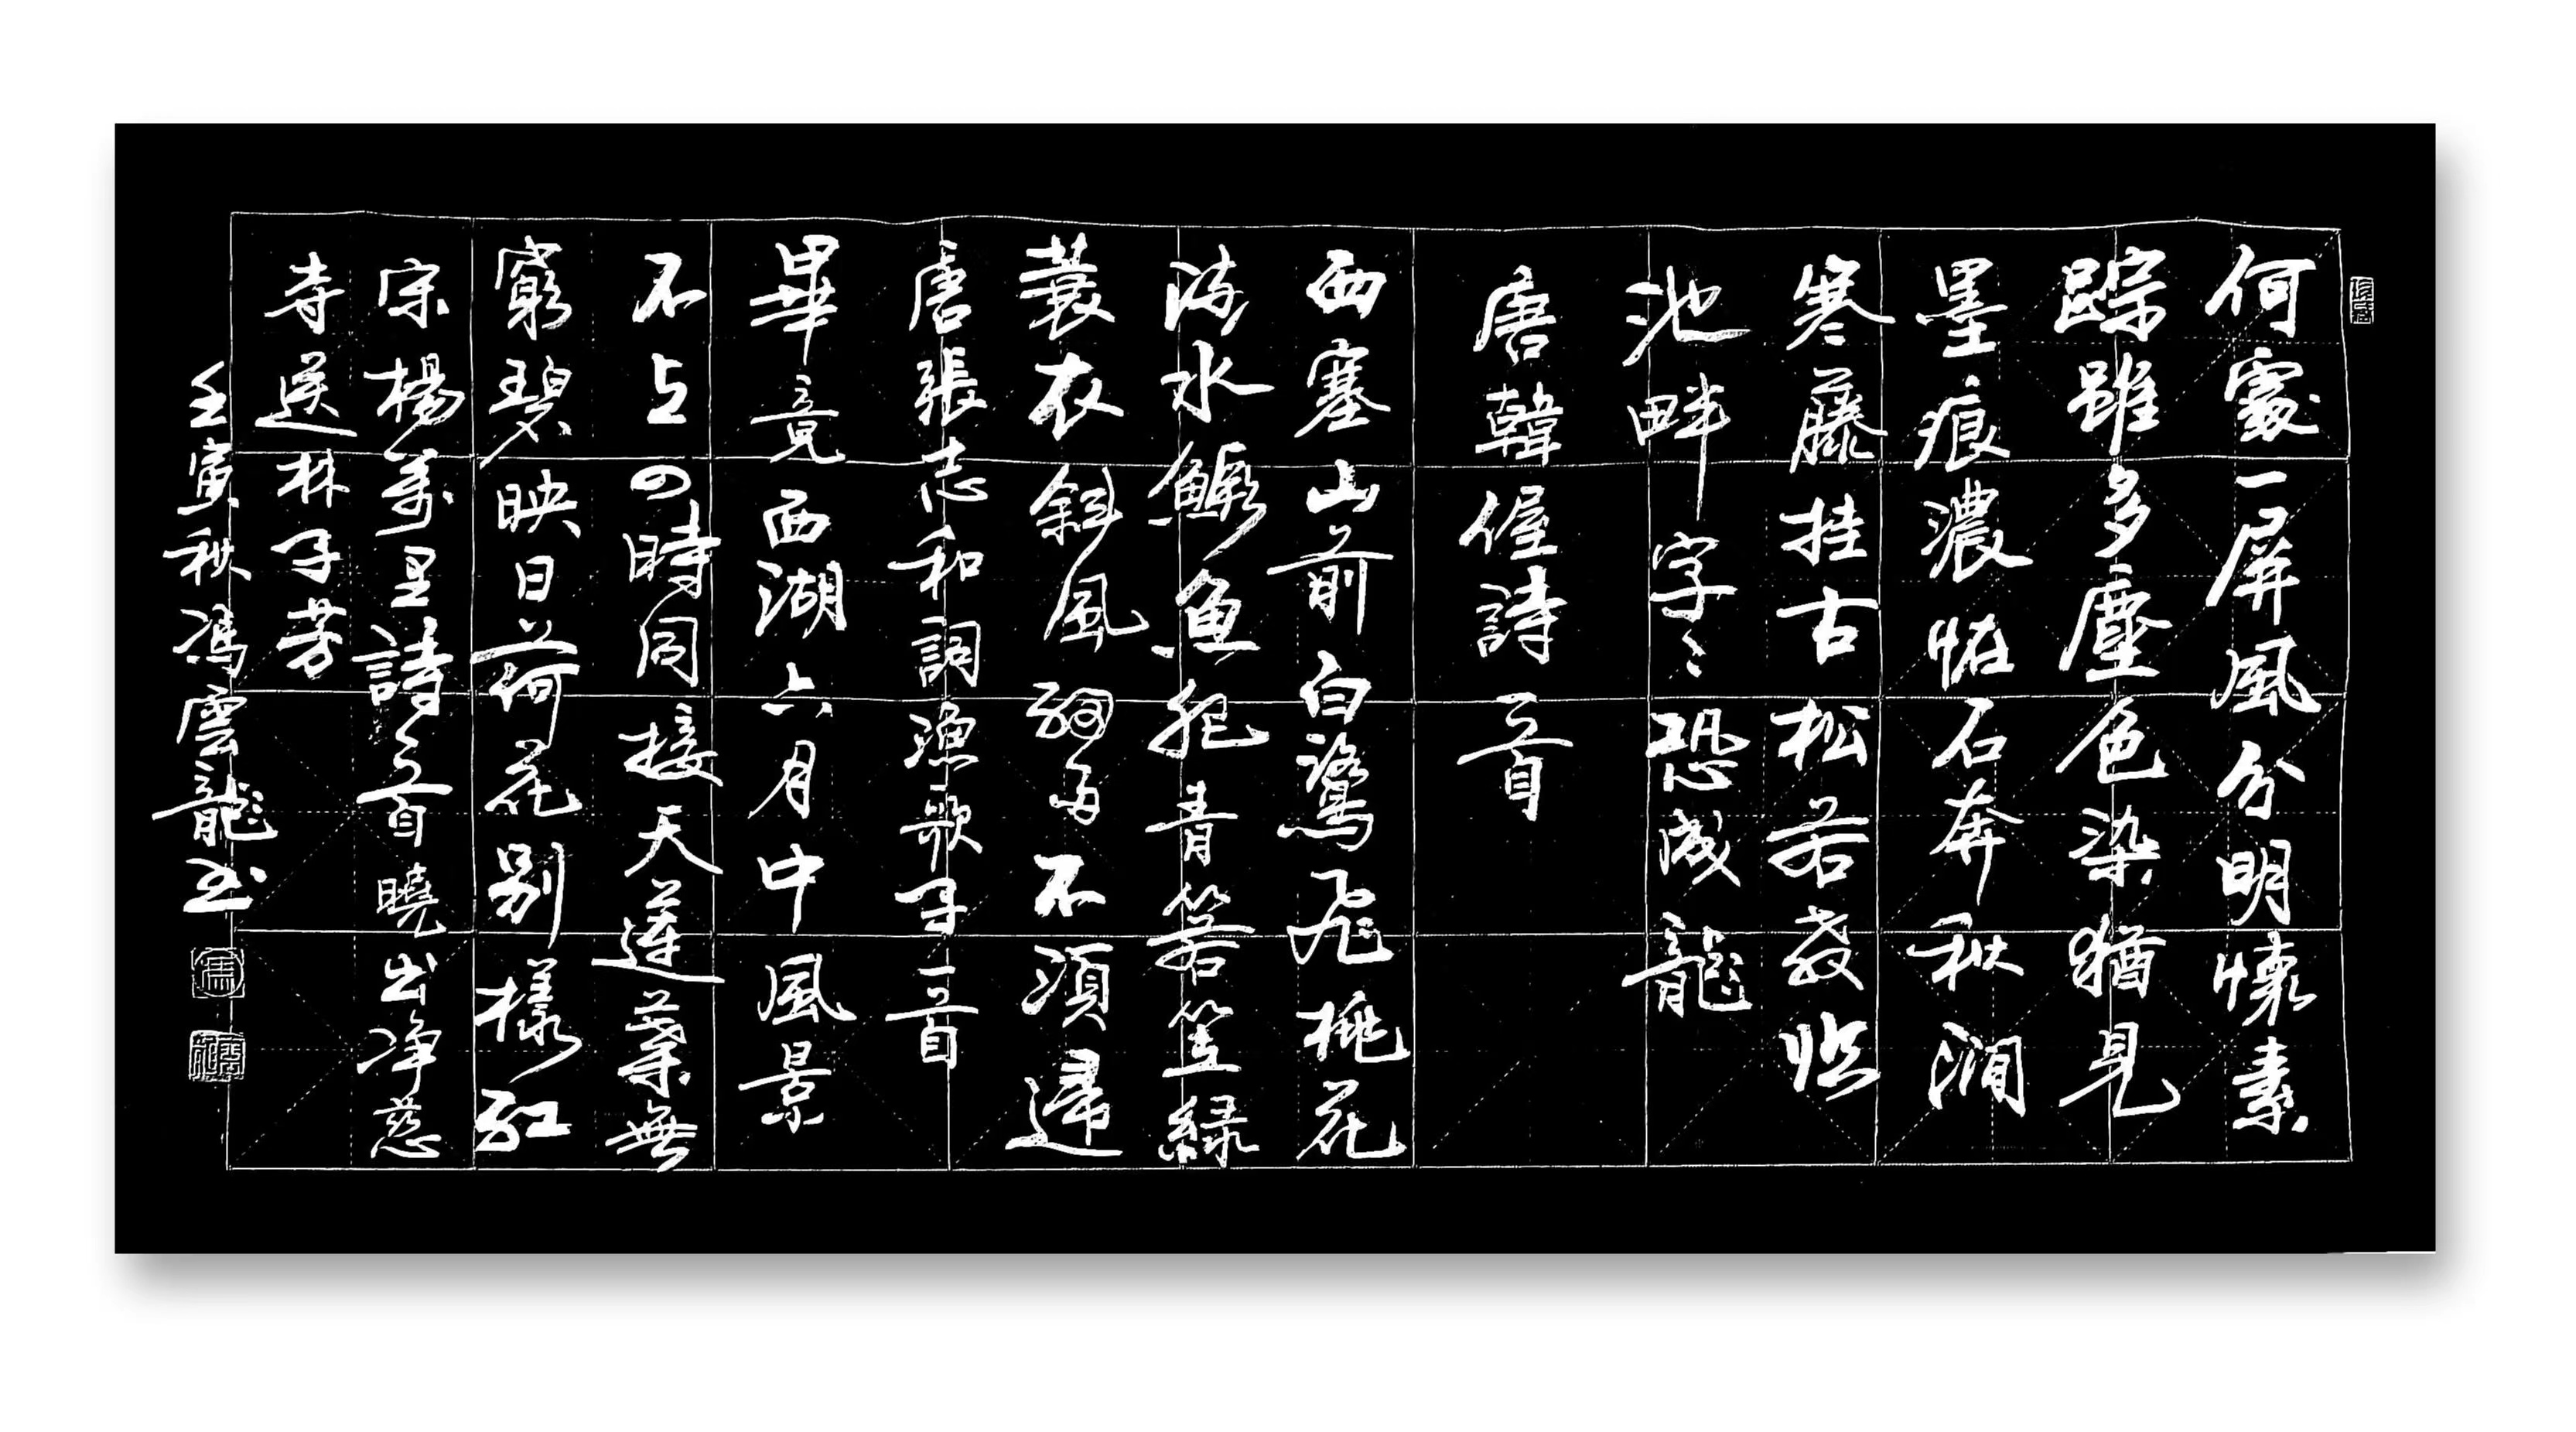 何處一屏風分明懷素
踪雖多塵色染猶見
墨痕濃恠石奔秋澗
寒藤挂古松若教臨
池畔字々恐成龍
唐韓偓詩一首
西塞山前白鷺飛桃花
流水鱖魚肥青箬笠緑
蓑衣斜風細雨不須歸
唐張志和詞漁歌子一首
畢竟西湖六月中風景
不与四時同接天蓮葉無
窮碧映日荷花别樣紅
宋楊萬里詩一首曉出净慈
寺送林子芳
壬寅秋馮雲龍书